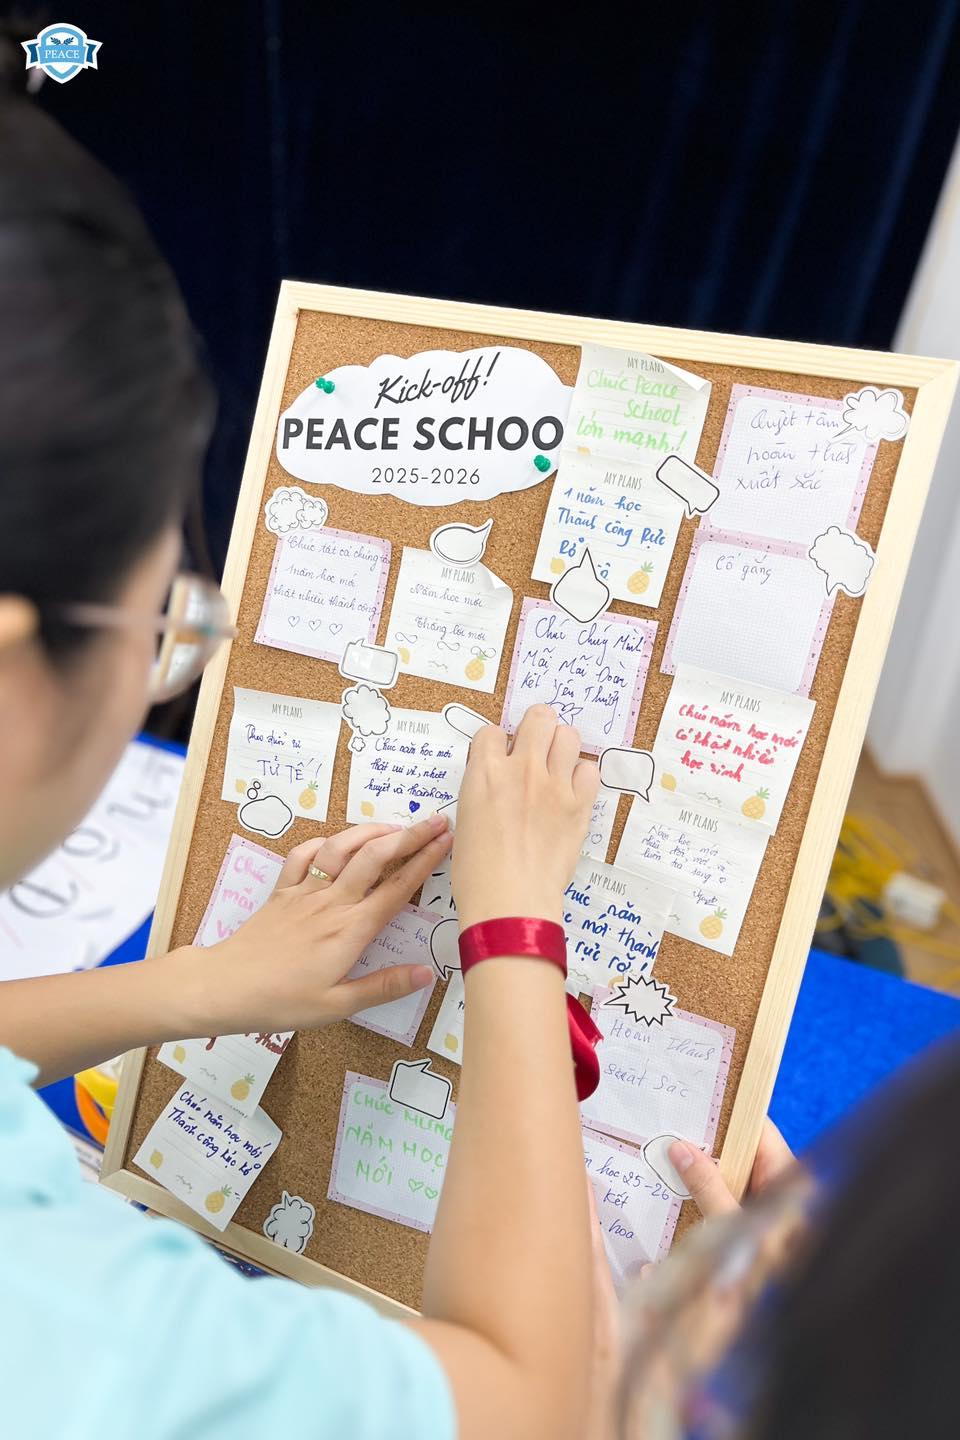 PEACE
Kick-off!
PEACE SCHOO
2025-2026
MY PLANS
Chúc Peace
School
lớn mạnh!
Quyết tâm
hoàn thành
xuất sắc
MY PLANS
1 năm học
Thành Công Rực
Rỡ
Cố gắng
Chúc tất cả chúng ta
1 năm học mới
thật nhiều thành công
♡ ♡ ♡
MY PLANS
Năm học mới
Thắng lợi mới
Chúc Chúng Mình
Mãi Mãi Đoàn
Kết Yêu Thương.
MY PLANS
Chúc năm học mới
có thật nhiều
học sinh
MY PLANS
Theo đuổi sự
TỬ TẾ!
MY PLANS
Chúc năm học mới
thật vui vẻ, nhiệt
huyết và thành công
MY PLANS
Năm học mới
nhiều đổi mới và
luôn tỏa sáng ♡
MY PLANS
Chúc năm
học mới thành
rực rỡ!
Chúc
mãi
Hoàn thành
xuất sắc
CHÚC MỪNG
NĂM HỌC
MỚI ♡♡
Chúc năm học mới
Thành công rực rỡ
học 25-26
kết
hoa